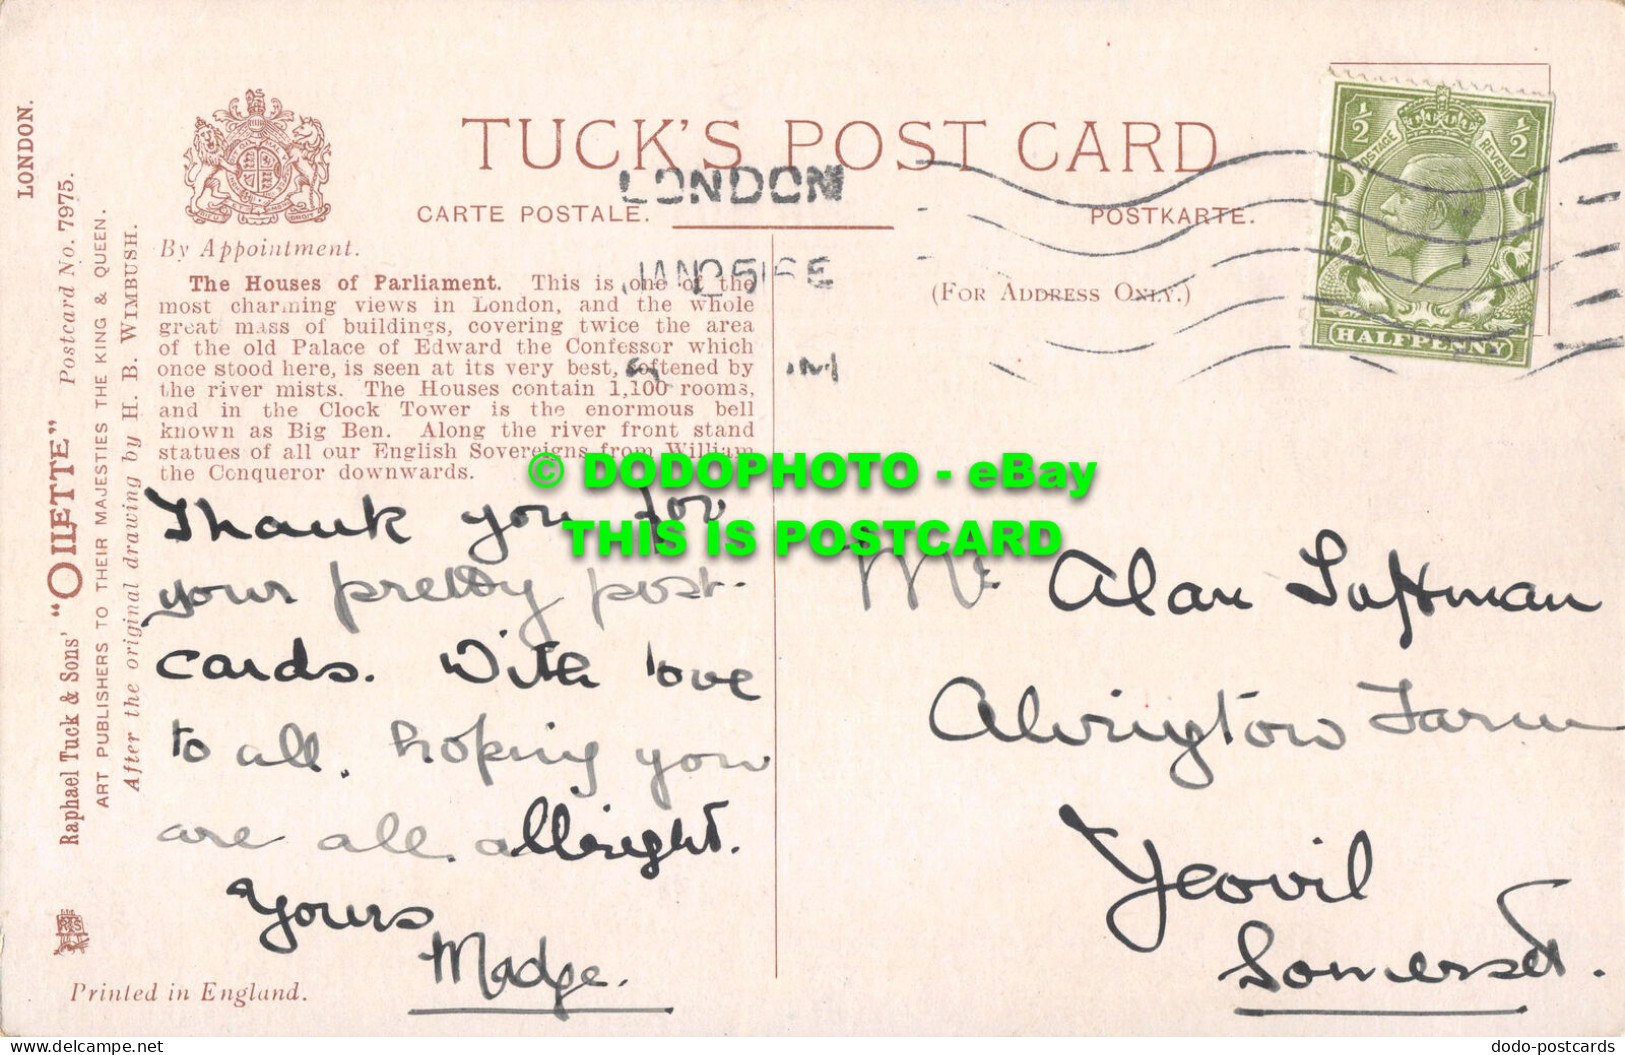 LONDON.
Raphael Tuck & Sons' "OILETTE" Postcard No. 7975.
ART PUBLISHERS TO THEIR MAJESTIES THE KING & QUEEN.
After the original drawing by H. B. WIMBUSH.
TUCK'S POST CARD
CARTE POSTALE.
POSTKARTE.
By Appointment.
(FOR ADDRESS ONLY.)
LONDON
JAN 25 16 E
½ ½
POSTAGE REVENUE
HALFPENNY
The Houses of Parliament. This is one of the
most charming views in London, and the whole
great mass of buildings, covering twice the area
of the old Palace of Edward the Confessor which
once stood here, is seen at its very best, softened by
the river mists. The Houses contain 1,100 rooms,
and in the Clock Tower is the enormous bell
known as Big Ben. Along the river front stand
statues of all our English Sovereigns from William
the Conqueror downwards.
© DODOPHOTO - eBay
THIS IS POSTCARD
Thank you for
your pretty post-
cards. With love
to all, hoping you
are all allright.
Yours
Madge.
Mr Alan Luffman
Alvington Farm
Yeovil
Somerset.
Printed in England.
dodo-postcards